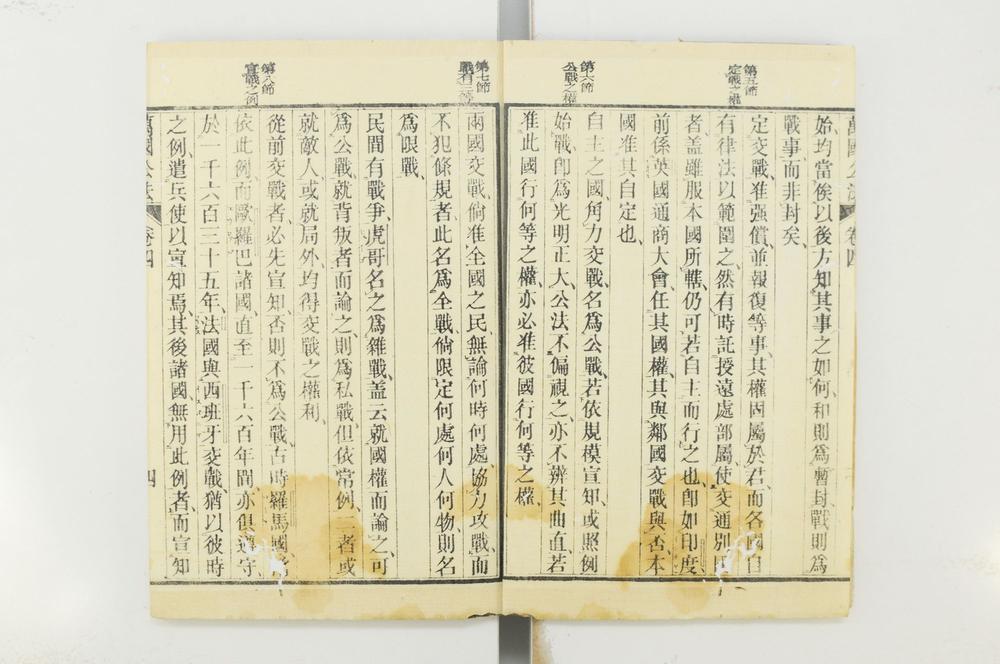 萬國公法 卷四
始、均當俟以後方知其事之如何、和則爲暫封、戰則爲
戰事而非封矣、
第五節
定戰之權
定交戰、准强償、並報復等事、其權固屬於君、而各國自
有律法以範圍之、然有時託授遠處部屬、使交通別國
者、盖雖服本國所轄、仍可若自主而行之也、卽如印度
前係英國通商大會、任其國權、其與鄰國交戰與否、本
國准其自定也、
第六節
公戰之權
自主之國、角力交戰、名爲公戰、若依規模宣知、或照例
始戰、卽爲光明正大、公法不偏視之、亦不辨其曲直、若
准此國行何等之權、亦必准彼國行何等之權、
第七節
戰有三等
兩國交戰、倘准全國之民、無論何時何處、協力攻戰、而
不犯條規者、此名爲全戰、倘限定何處何人何物、則名
爲限戰、
民間有戰爭、虎哥名之爲雜戰、盖云就國權而論之、可
爲公戰、就背叛者而論之、則爲私戰、但依常例、二者或
就敵人、或就局外、均得交戰之權利、
第八節
宣戰之例
從前交戰者、必先宣知、否則不爲公戰、古時羅馬國
依此例、而歐羅巴諸國、直至一千六百年間、亦俱遵守、
於一千六百三十五年、法國與西班牙交戰、猶以彼時
之例、遣兵使以宣知焉、其後諸國、無用此例者、而宣知
萬國公法 卷四 四